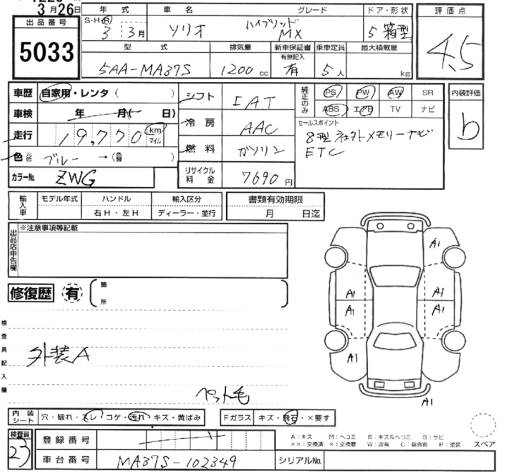 3月26日
出品番号
5033
年式 車名 グレード ドア・形状
S-H-R 3年 3月 ソリオ ハイブリッドMX 5 箱型
型式 排気量 新車保証書 有無記入 乗車定員 最大積載量
5AA-MA37S 1200cc 有 5人 kg
評価点
4.5
車歴 自家用・レンタ( )
車検 年 月( 日)
走行 19,770 km マイル
色 ブルー →(
カラーNo. ZWG
シフト IAT
冷房 AAC
燃料 ガソリン
リサイクル料金 7690円
純正のみ PS PW AW SR
ABS エアB TV ナビ
セールスポイント
8型 メモリーナビ
ETC
内装評価
b
輸入車 モデル年式 ハンドル 輸入区分
右H・左H ディーラー・並行
書類有効期限
月 日迄
出品店申告欄
※注意事項等記載
修復歴 有 箇所
検査員記入欄
外装A
ペット毛
A1
A1 A1
A1 A1
A1
A1
内装シート 穴・破れ・スレ・コゲ・汚れ・キズ・黄ばみ
Fガラス キズ・飛石・×要す
スペア
検査員
23
登録番号
車台番号 MA37S-102349
シリアルNo.
A:キズ M:ヘコミ B:キズ&ヘコミ S:サビ
××:交換済 ×:交換要 W:波有 C:腐食有 P:塗装